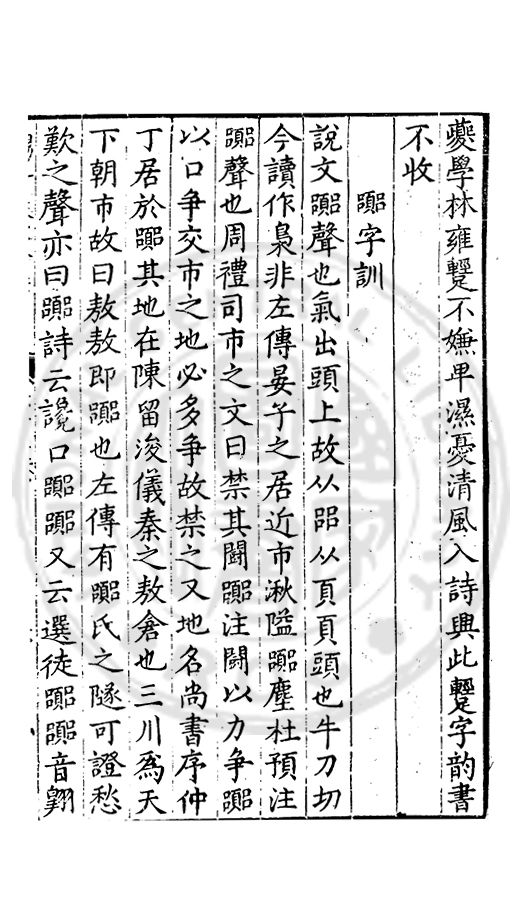 夔學林雍躄不嫌卑濕憂清風入詩與此躄字韵書
不收
囂字訓
說文囂聲也氣出頭上故从㗊从頁頁頭也牛刀切
今讀作梟非左傳晏子之居近市湫隘囂塵杜預注
囂聲也周禮司市之文曰禁其鬭囂注鬭以力争囂
以口争交市之地必多争故禁之又地名尚書序仲
丁居於囂其地在陳留浚儀秦之敖倉也三川為天
下朝市故曰敖敖即囂也左傳有囂氏之隧可證愁
歎之聲亦曰囂詩云讒口囂囂又云選徒囂囂音翺